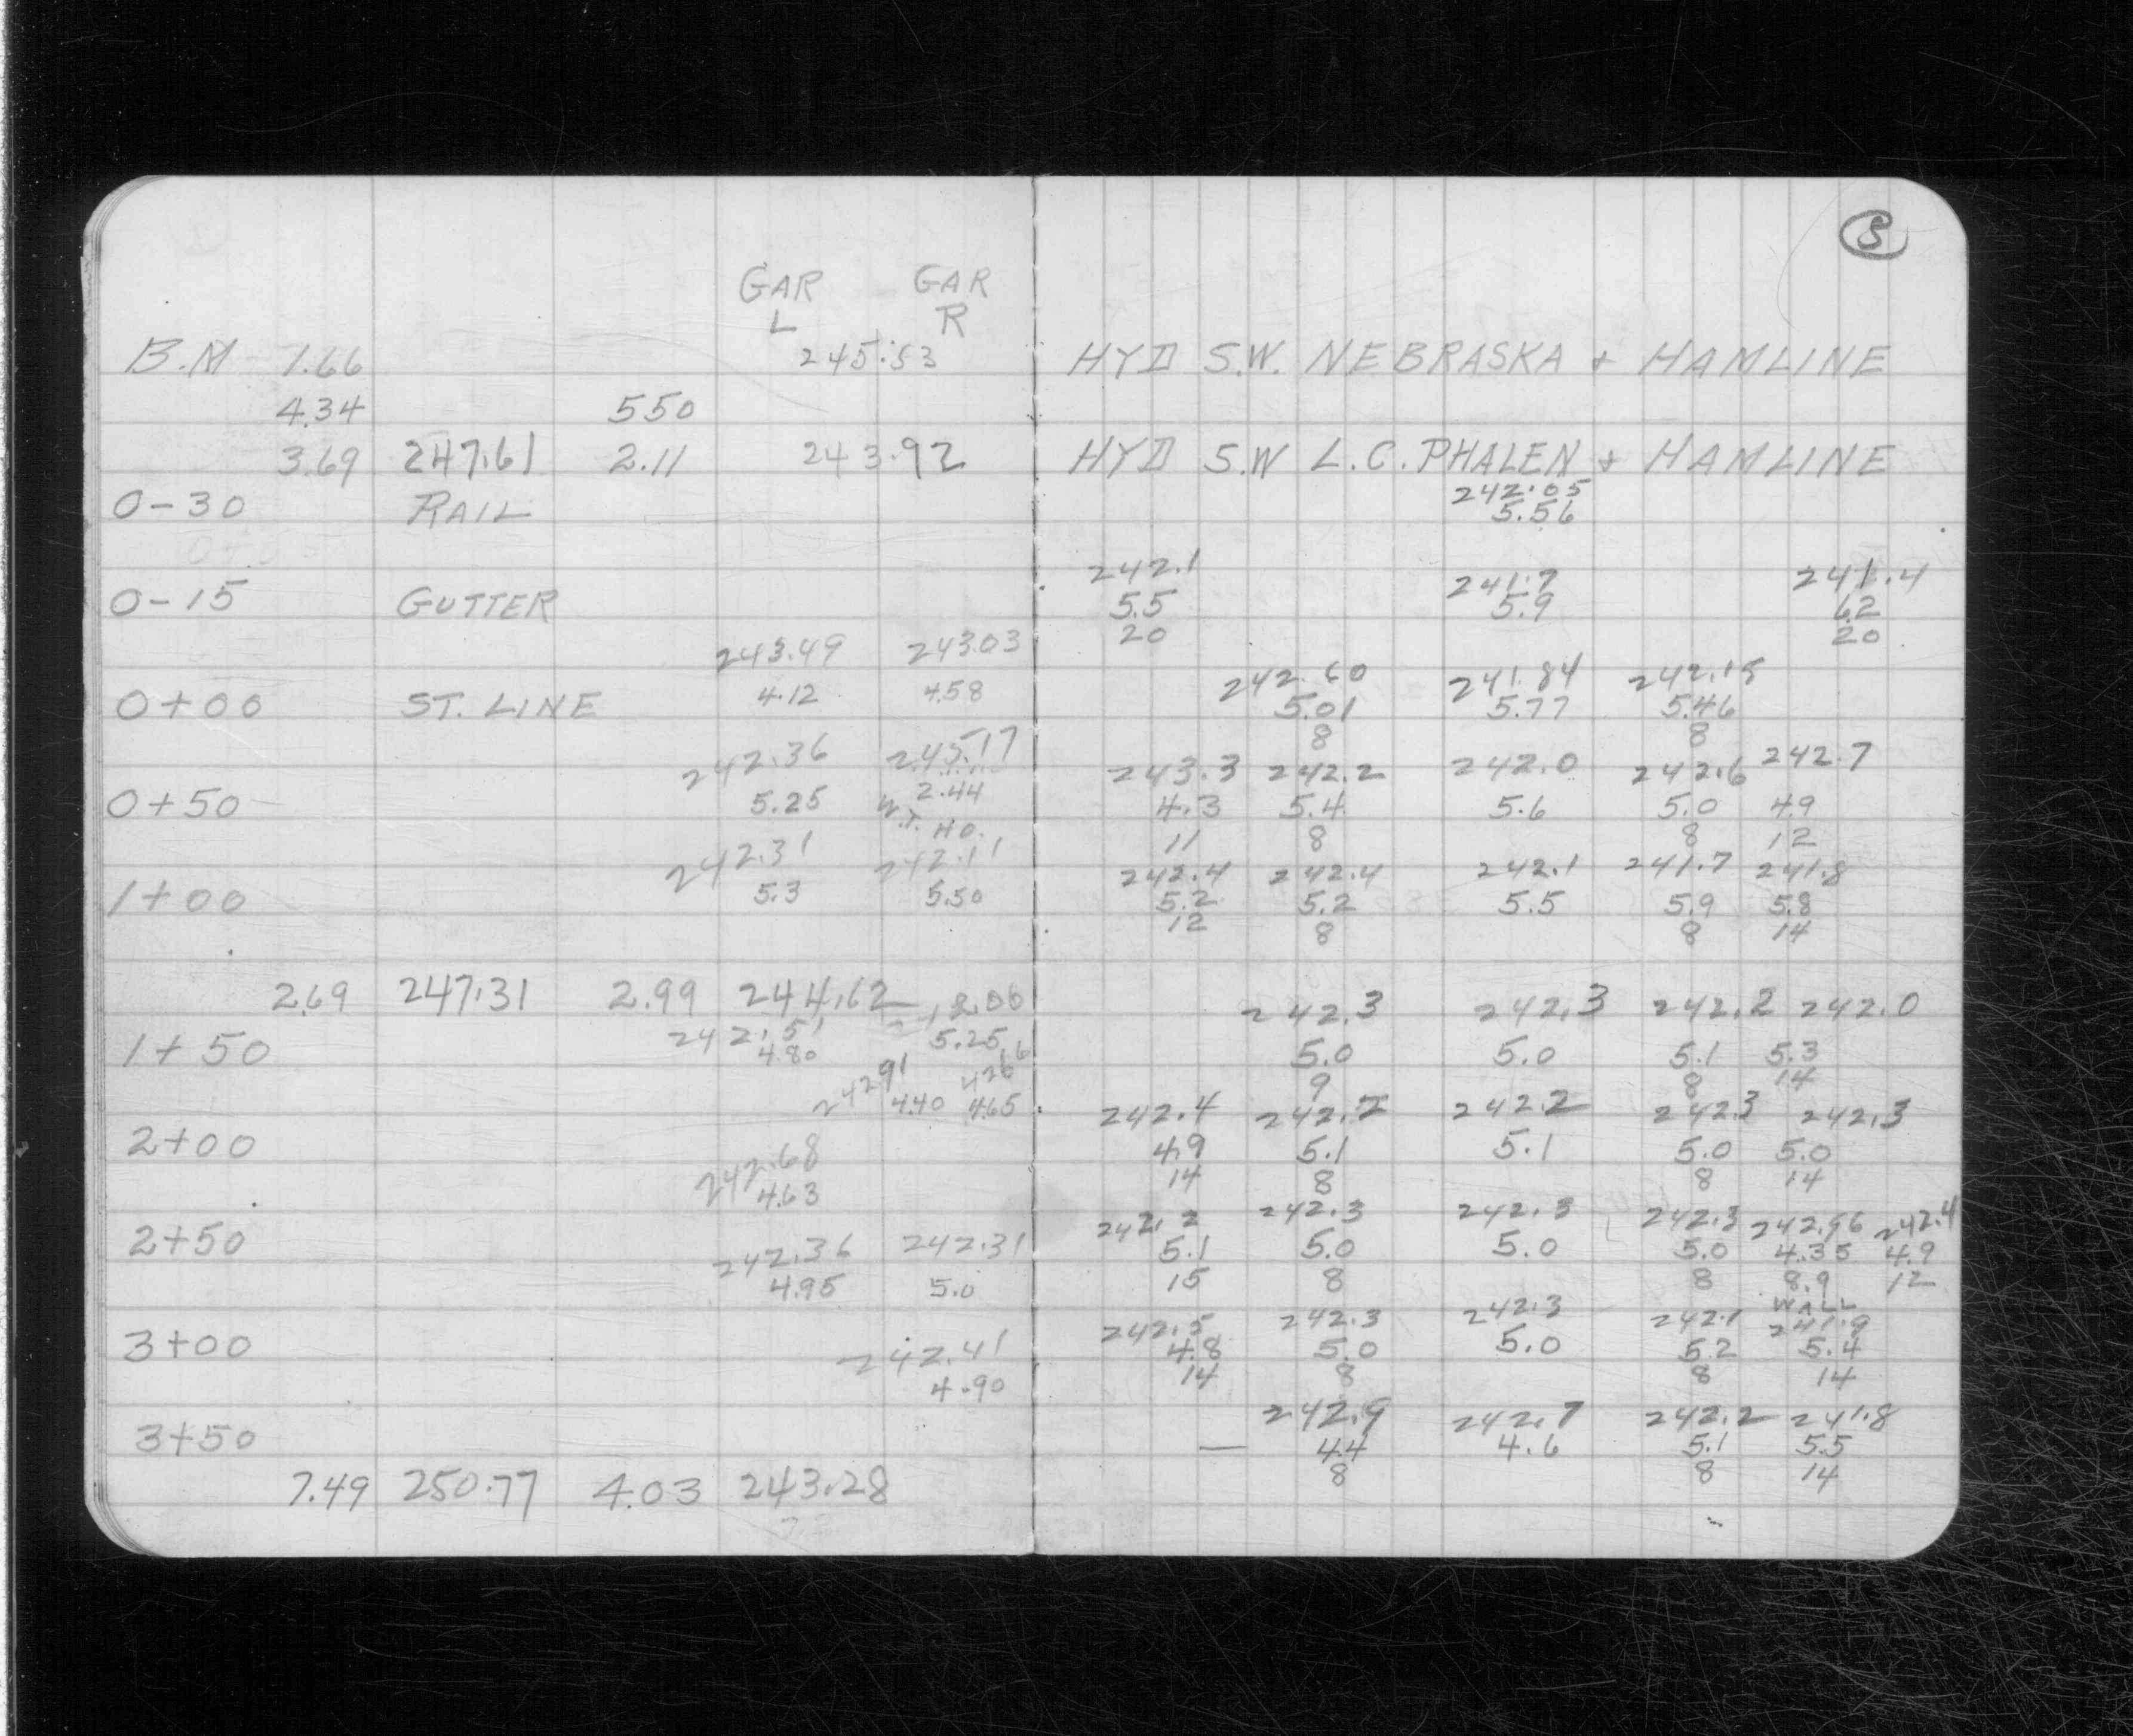 8
GAR GAR
L R
B.M 1.66 245.53 HYD S.W. NEBRASKA + HAMLINE
4.34 550
3.69 247.61 2.11 243.92 HYD S.W L.C. PHALEN + HAMLINE
242.05
0-30 RAIL 5.56
242.1 241.7 241.4
0-15 GUTTER 5.5 5.9 6.2
20 20
243.49 243.03 242.60 241.84 242.15
0+00 ST. LINE 4.12 4.58 5.01 5.77 5.46
8 8
242.36 245.17 243.3 242.2 242.0 242.6 242.7
0+50 5.25 2.44 4.3 5.4 5.6 5.0 4.9
W.T. HO. 11 8 8 12
242.31 242.11 242.4 242.4 242.1 241.7 241.8
1+00 5.3 5.50 5.2 5.2 5.5 5.9 5.8
12 8 8 14
2.69 247.31 2.99 244.62 242.3 242.3 242.2 242.0
242.51 5.25
1+50 4.80 5.0 5.0 5.1 5.3
9 8 14
242.91 242.4 242.2 242.2 242.3 242.3
4.40 4.65
2+00 4.9 5.1 5.1 5.0 5.0
14 8 8 14
242.68
4.63
242.2 242.3 242.3 242.3 242.96 242.4
2+50 5.1 5.0 5.0 5.0 4.35 4.9
15 8 8 8.9 12
WALL
242.36 242.31
4.95 5.0
242.5 242.3 242.3 242.1 241.9
3+00 4.8 5.0 5.0 5.2 5.4
14 8 8 14
242.41
4.90
242.9 242.7 242.2 241.8
3+50 — 4.4 4.6 5.1 5.5
8 8 14
7.49 250.77 4.03 243.28